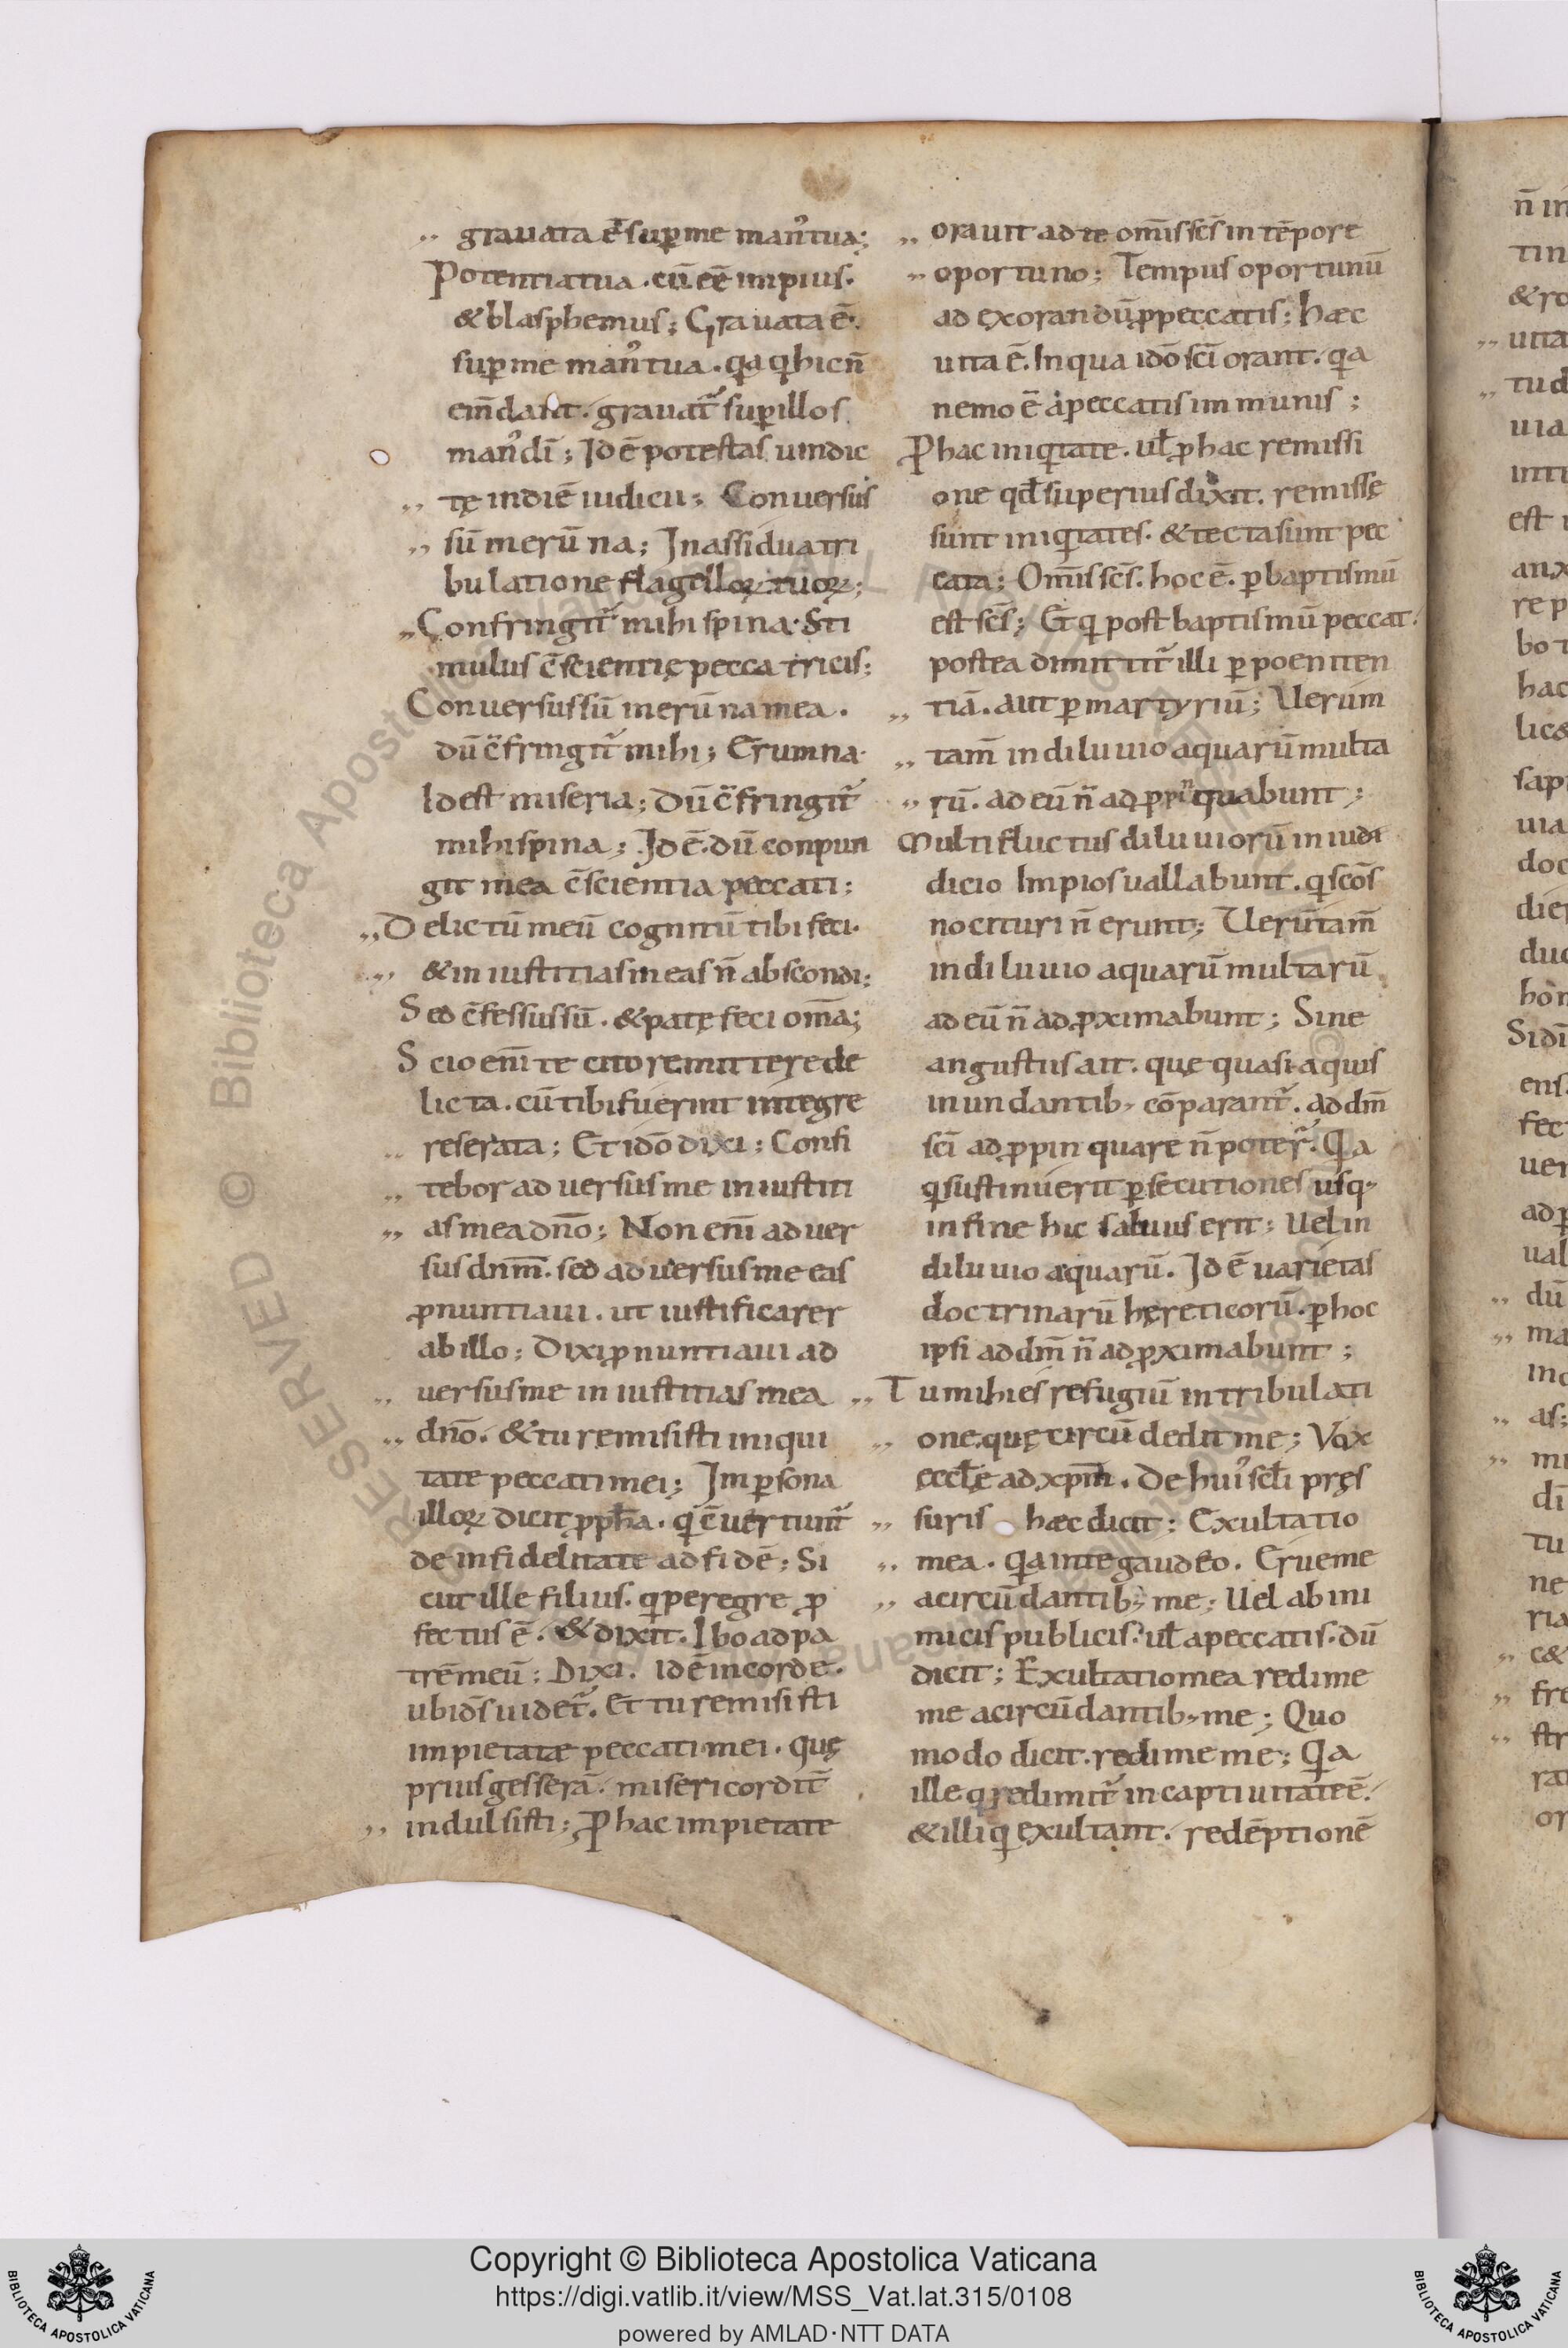 grauata ē sup me manꝰ tua;
Potentia tua. cū eē impius.
& blasphemus; Grauata ē.
sup me manꝰ tua. qa q hic n̄
em̄dant. grauat̄ sup illos
manꝰ di; Id ē potestas uindic
tę in diē iudicii; Conuersus
sū in erūna; In assidua tri
bulatione flagelloꝝ tuoꝝ;
Confringit̄ mihi spina. Sti
mulus c̄scientię peccatricis;
Conuersus sū in erūna mea.
dū c̄fringit̄ mihi; Erumna.
Id est miseria; Dū c̄fringit̄
mihi spina; Id ē. dū conpun
git mea c̄scientia peccati;
Delictū meū cognitū tibi feci.
& iniustitias meas n̄ abscondi;
Sed c̄fessus sū. & patefeci om̄a;
Scio eni te cito remittere de
licta. cū tibi fuerint integre
reserata; Et idō dixi; Confi
tebor aduersus me iniustiti
as mea dn̄o; Non eni aduer
sus dnm̄. sed aduersus me eas
ꝓnuntiaui. ut iustificarer
ab illo; Dixi ꝓnuntiaui ad
uersus me iniustitias mea
dn̄o. & tu remisisti iniqui
tate peccati mei; Im psona
illoꝝ dicit ꝓpha. q c̄uertunt̄
de infidelitate ad fidē; Si
cut ille filius. q peregre ꝓ
fectus ē. & dixit. Ibo ad pa
trē meū; Dixi. Id ē in corde.
ubi ds̄ uidet̄. Et tu remisisti
impietatæ peccati mei. Quę
prius gesserā. misericordit̄
indulsisti; Ꝓ hac impietate
orauit ad te omīs scs̄ in tēpore
oportuno; Tempus oportunū
ad exorandū ꝓ peccatis; Hæc
uita ē. In qua idō sci orant. qa
nemo ē a peccatis immunis;
Ꝓ hac iniqtate. ul ꝓ hac remissi
one qd superius dixit. remissę
sunt iniqtates. & tecta sunt pec
cata; Omīs scs̄. hoc ē. p baptismū
est scs̄; Et q post baptismū peccat.
postea dimittit̄ illi p poeniten
tiā. aut p martyriū; Uerum
tam̄ in diluuio aquarū multa
rū. ad eū n̄ adꝓpinquabunt;
Multi fluctus diluuiorū in iudi
dicio Impios uallabunt. q scōs
nocituri n̄ erunt; Uerūtam̄
in diluuio aquarū multarū
ad eū n̄ adꝓximabunt; Sine
angustus ait. quę quasi aquis
inundantib; cōparant̄. Ad dm̄
sci adꝓpinquare n̄ poter̄. Qa
q sustinuerit psecutiones usq;
in fine hic saluus erit; Uel in
diluuio aquarū. Id ē uarietas
doctrinarū hęreticorū. p hoc
ipsi ad dm̄ n̄ adꝓximabunt;
Tu mihi es refugiū in tribulati
one. quę circūdedit me; Vox
ęcclę ad xpm̄. De huiꝰ scli pręs
suris hæc dicit; Exultatio
mea. Qa in te gaudeo. Erue me
a circūdantib; me; Uel ab ini
micis publicis. ul a peccatis. dū
dicit; Exultatio mea redime
me a circūdantib; me; Quo
modo dicit. redime me; Qa
ille q redimit̄ in captiuitate ē.
& illi q exultant. redēptionē
Copyright © Biblioteca Apostolica Vaticana
https://digi.vatlib.it/view/MSS_Vat.lat.315/0108
powered by AMLAD·NTT DATA